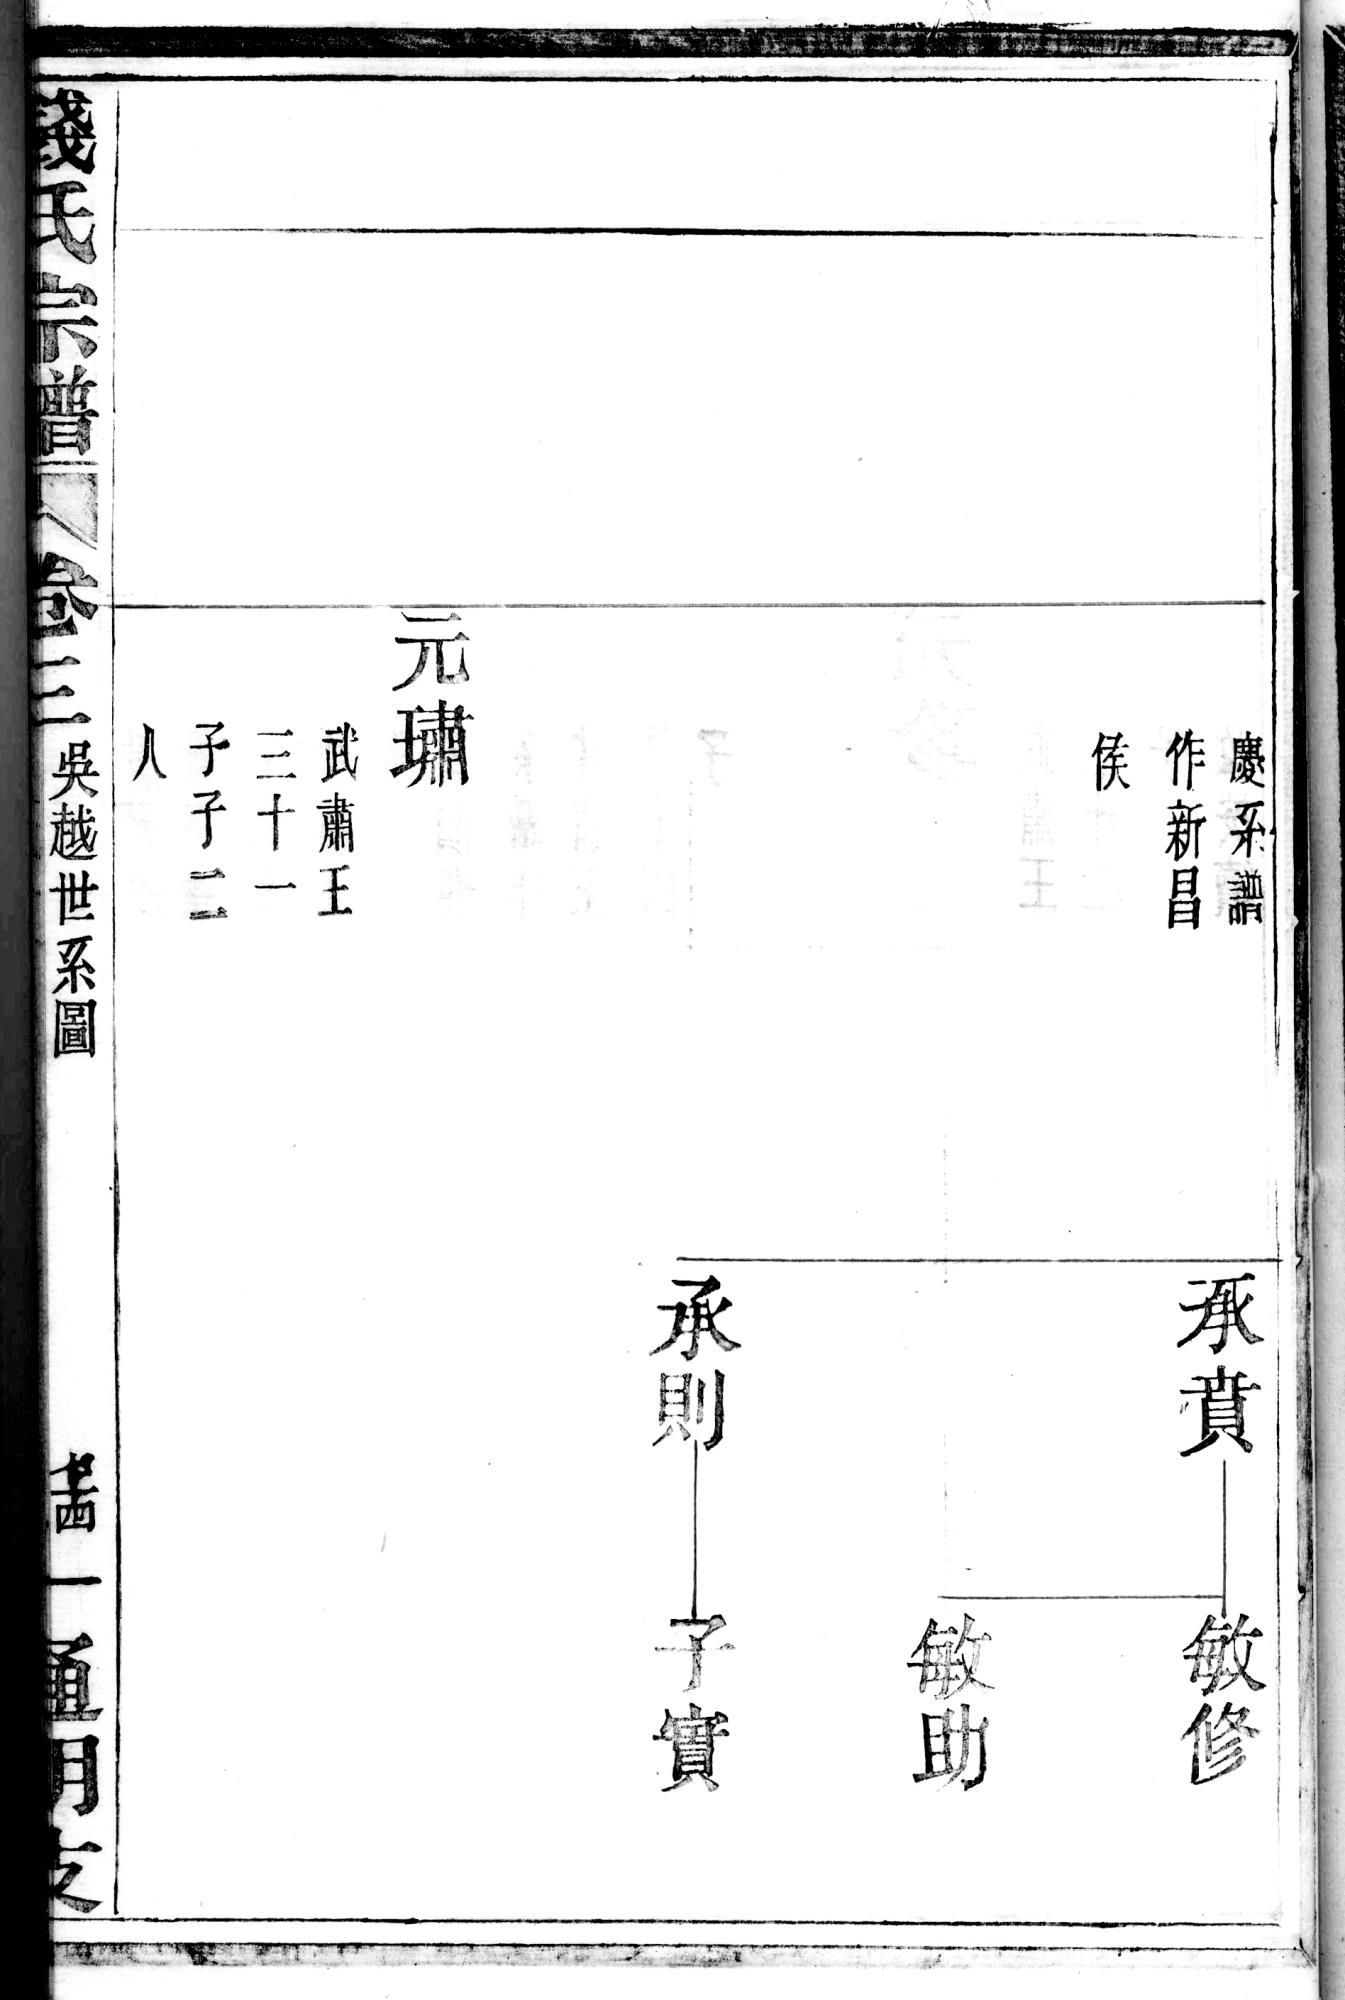 慶系譜
作新昌
侯
承賁
敏修
敏助
承則
子實
元璛
武肅王
三十一
子子二
人
錢氏宗譜
卷三
吳越世系圖
一
通明支